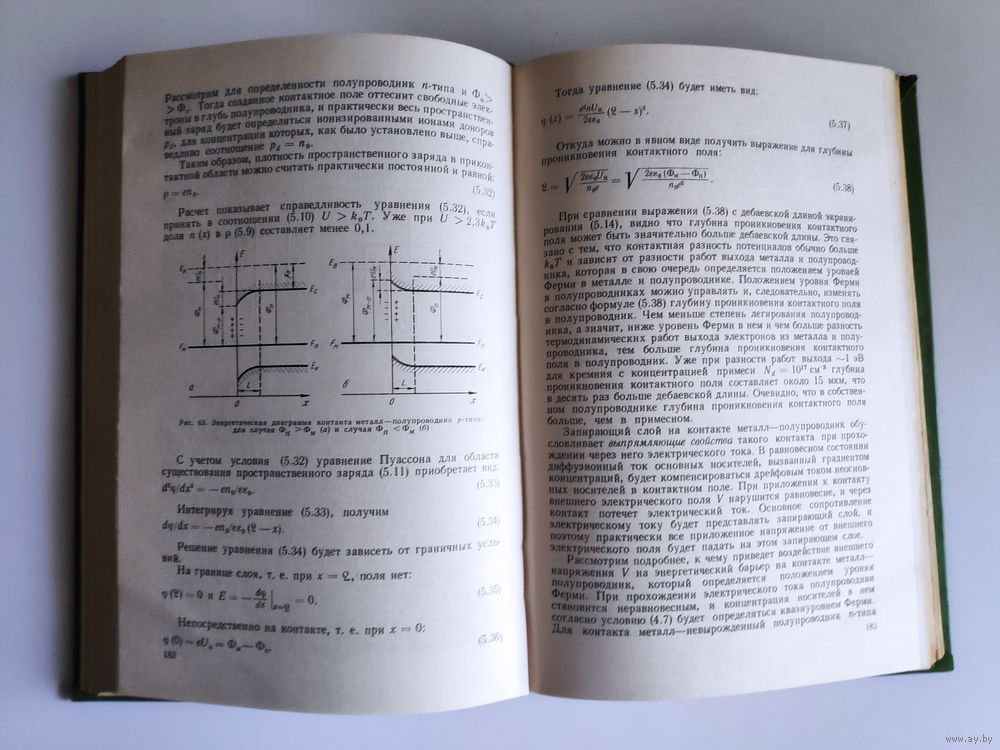 Рассмотрим для определенности полупроводник n-типа и Φм >
> Φп. Тогда созданное контактное поле оттеснит свободные элек-
троны в глубь полупроводника, и практически весь пространствен-
ный заряд будет определяться ионизированными ионами доноров
pd, для концентрации которых, как было установлено выше, спра-
ведливо соотношение pd = n0.
Таким образом, плотность пространственного заряда в прикон-
тактной области можно считать практически постоянной и равной:
ρ = en0. (5.32)
Расчет показывает справедливость уравнения (5.32), если
принять в соотношении (5.10) U > k0T. Уже при U > 2,3k0T
доля n (x) в ρ (5.9) составляет менее 0,1.
E E
Eв Eв
Eс Eс
Fм Fп Fм Fп
Ev Ev
а L б L
0 x 0 x
Рис. 63. Энергетическая диаграмма контакта металл—полупроводник p-типа-
для случая Φп > Φм (а) и случая Φп < Φм (б)
С учетом условия (5.32) уравнение Пуассона для области
существования пространственного заряда (5.11) приобретает вид:
d²φ/dx² = — en0/εε0. (5.33)
Интегрируя уравнение (5.33), получим
dφ/dx = — en0/εε0 (𝔏 — x). (5.34)
Решение уравнения (5.34) будет зависеть от граничных усло-
вий.
На границе слоя, т. е. при x = 𝔏, поля нет:
φ (𝔏) = 0 и E = — dφ/dx |x=𝔏 = 0. (5.35)
Непосредственно на контакте, т. е. при x = 0:
φ (0) = eUк = Φм — Φп. (5.36)
182
Тогда уравнение (5.34) будет иметь вид:
φ (x) = e²nUк/2εε0 (𝔏 — x)². (5.37)
Откуда можно в явном виде получить выражение для глубины
проникновения контактного поля:
𝔏 = √ 2εε0Uк/n0e = √ 2εε0 (Φм — Φп)/n0e² . (5.38)
При сравнении выражения (5.38) с дебаевской длиной экрани-
рования (5.14), видно что глубина проникновения контактного
поля может быть значительно больше дебаевской длины. Это свя-
зано с тем, что контактная разность потенциалов обычно больше
k0T и зависит от разности работ выхода металла и полупровод-
ника, которая в свою очередь определяется положением уровней
Ферми в металле и полупроводнике. Положением уровня Ферми
в полупроводниках можно управлять и, следовательно, изменять
согласно формуле (5.38) глубину проникновения контактного поля
в полупроводник. Чем меньше степень легирования полупровод-
ника, а значит, ниже уровень Ферми в нем и чем больше разность
термодинамических работ выхода электронов из металла и полу-
проводника, тем больше глубина проникновения контактного
поля в полупроводник. Уже при разности работ выхода ~1 эВ
для кремния с концентрацией примеси Nd = 10¹⁷ см⁻³ глубина
проникновения контактного поля составляет около 15 мкм, что
в десять раз больше дебаевской длины. Очевидно, что в собствен-
ном полупроводнике глубина проникновения контактного поля
больше, чем в примесном.
Запирающий слой на контакте металл—полупроводник обу-
словливает выпрямляющие свойства такого контакта при прохо-
ждении через него электрического тока. В равновесном состоянии
диффузионный ток основных носителей, вызванный градиентом
концентраций, будет компенсироваться дрейфовым током неоснов-
ных носителей в контактном поле. При приложении к контакту
внешнего электрического поля V нарушится равновесие, и через
контакт потечет электрический ток. Основное сопротивление
электрическому току будет представлять запирающий слой, и
поэтому практически все приложенное напряжение от внешнего
электрического поля будет падать на этом запирающем слое.
Рассмотрим подробнее, к чему приведет воздействие внешнего
напряжения V на энергетический барьер на контакте металл—
полупроводник, который определяется положением уровня
Ферми. При прохождении электрического тока полупроводник
становится неравновесным, и концентрация носителей в нем
согласно условию (4.7) будет определяться квазиуровнем Ферми.
Для контакта металл—невырожденный полупроводник n-типа
183
www.ay.by